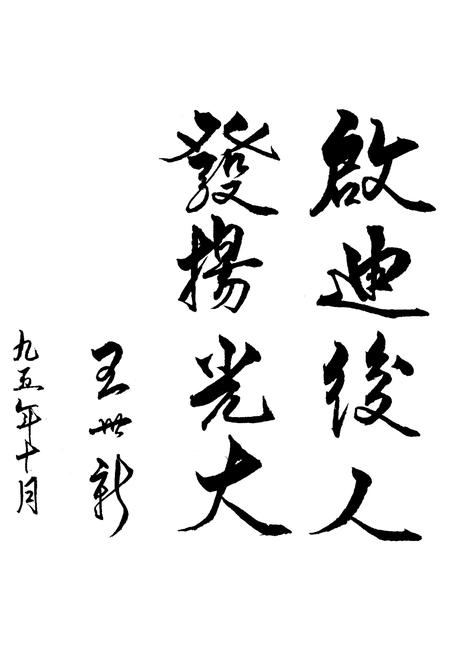 啟迪後人
發揚光大
王世新
九五年十月